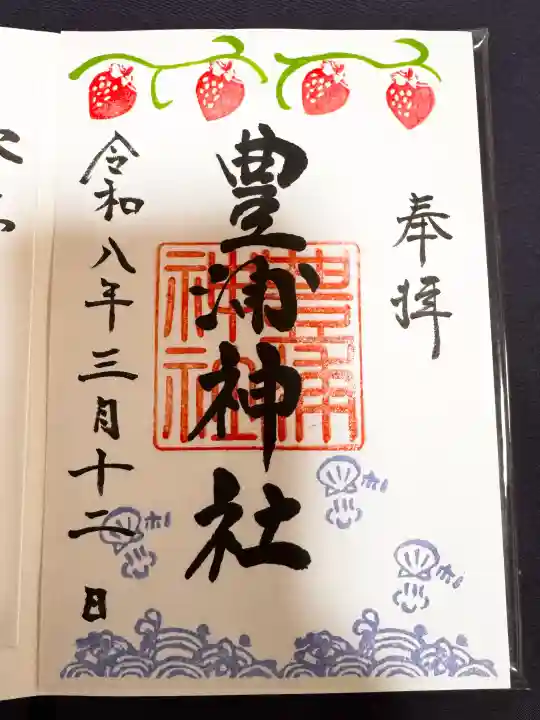 奉拝
豊浦神社
豊浦
神社
令和八年三月十二日
ホ!
ホ!
ホ!